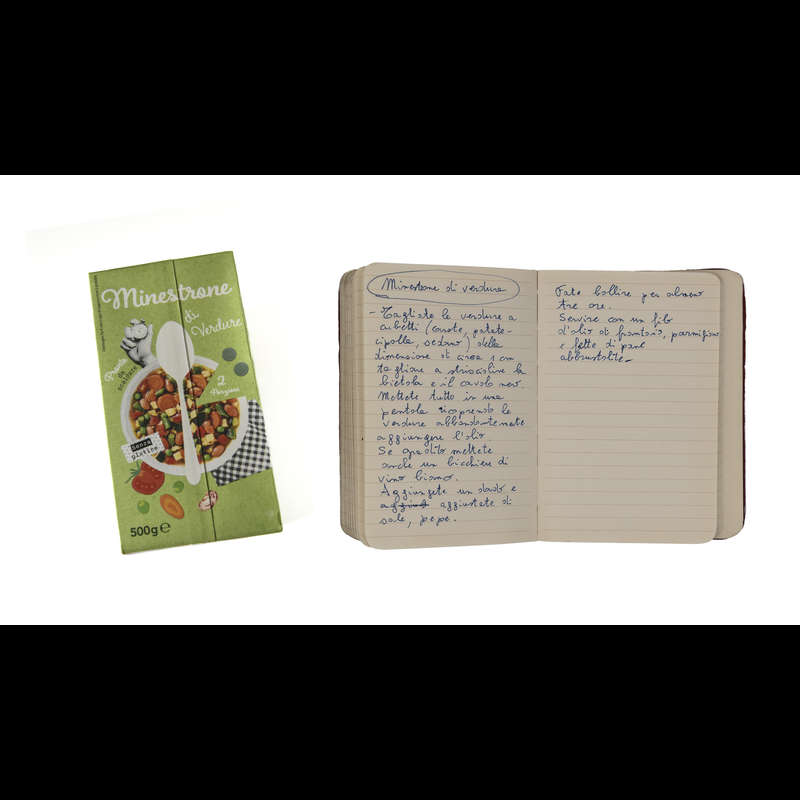 Minestrone
di
Verdure
Pronto
da
scaldare
2
Porzioni
senza
glutine
500g e
Minestrone di verdure
- Tagliate le verdure a
cubetti (carote, patate-
cipolla, sedano) della
dimensione di circa 1 cm
tagliare a striscioline la
bietola e il cavolo nero.
Mettete tutto in una
pentola ricoprendo le
verdure abbondantemente
aggiungere l'olio.
Se gradito mettete
anche un bicchiere di
vino bianco.
Aggiungete un dado e
aggiustate di
sale, pepe.
Fate bollire per almeno
tre ore.
Servire con un filo
d'olio di frantoio, parmigiano
e fette di pane
abbrustolite-